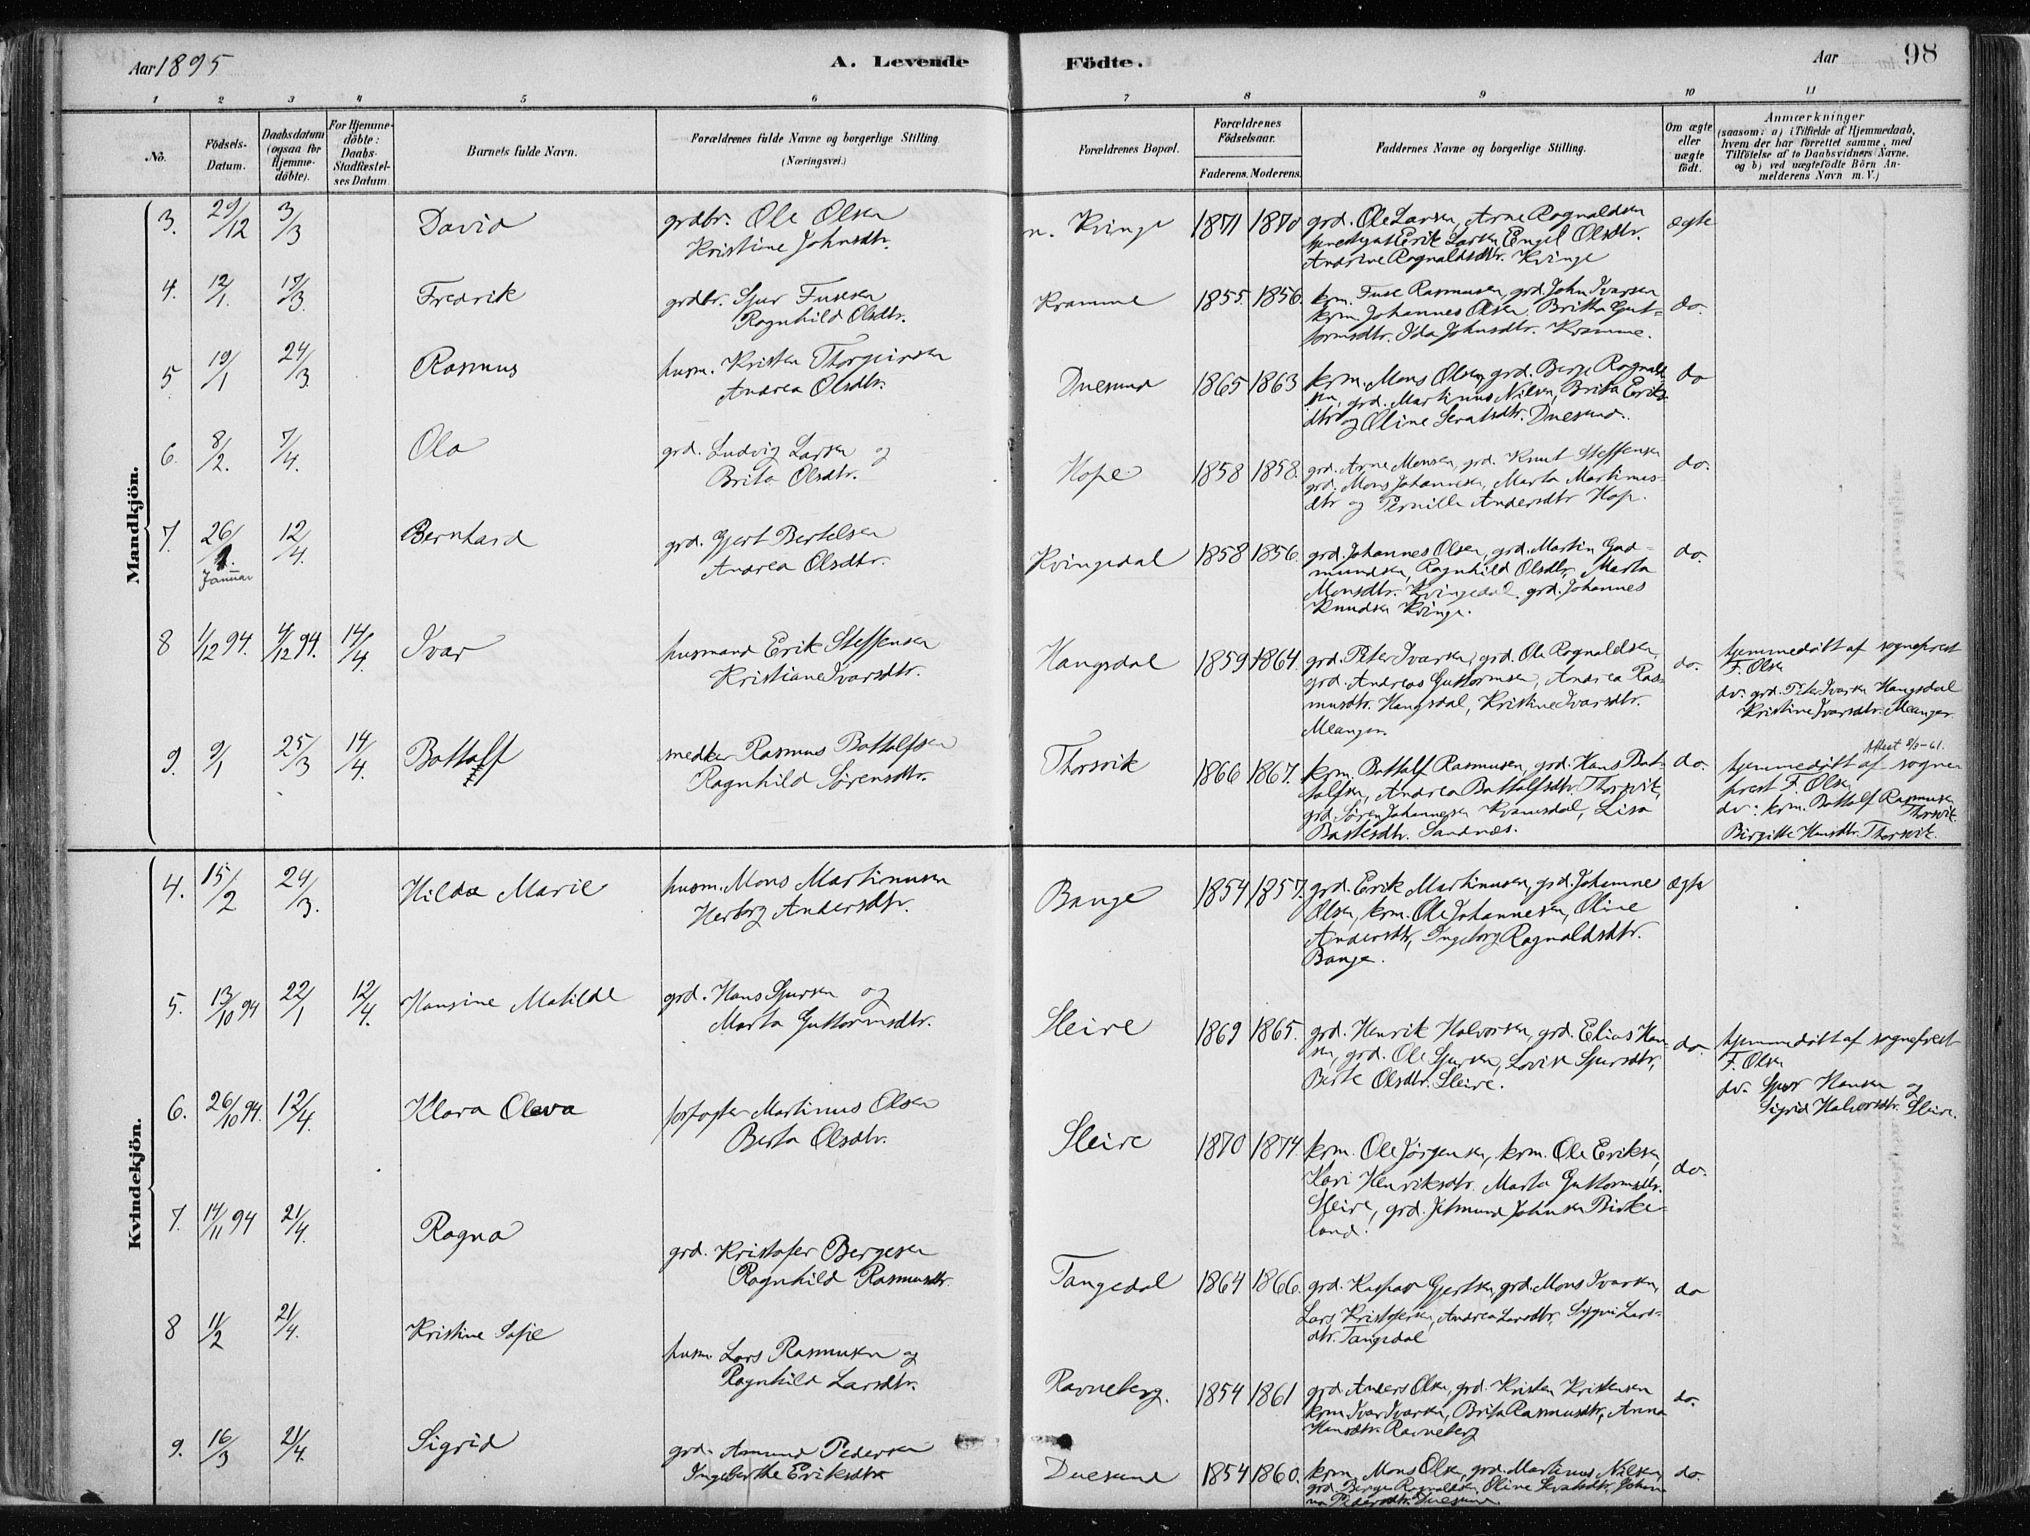 Aar 1895
A. Levende
Födte.
Aar
98
1 2 3 4 5 6 7 8 9 10 11
No.
Födsels-
Datum.
Daabsdatum
(ogsaa for
Hjemme-
döbte).
For Hjemme-
döbte:
Daabs-
Stadfæstel-
ses Datum.
Barnets fulde Navn.
Forældrenes fulde Navne og borgerlige Stilling
(Næringsvei.)
Forældrenes Bopæl.
Forældrenes
Födselsaar.
Faderens. Moderens.
Faddernes Navne og borgerlige Stilling.
Om ægte
eller
uægte
födt.
Anmærkninger
(saasom: a) i Tilfælde af Hjemmedaab,
hvem der har forrettet samme, med
Tilföielse af to Daabsvidners Navne,
og b) ved uægtefödte Börn An-
melderens Navn m. V.)
Mandkjön.
3. 29/12 3/3 David
grdbr. Ole Olsen
Kristine Johnsdtr.
n. Kvinge 1871 1870
grd. Ole Larsen, Arne Rognaldsen
Erik Larsen, Engel Olsdtr.
Andrine Rognaldsdtr. Kvinge
ægte
4. 12/1. 17/3. Fredrik
grdbr. Sjur Fusesen
Rognhild Olsdtr.
Kramme 1855. 1856.
krm. Fuse Rasmusen, grd. John Ivarsen
krm. Johannes Olsen, Britha Gut-
tormsdtr. Ida Johnsdtr. Kramme.
do.
5 19/1 24/3 Rasmus
husm. Kristen Thorgeirsen
Andrea Olsdtr.
Duesund 1865 1863
krm. Mons Olsen, grd. Berge Rognald-
sen, grd. Martinus Nilsen, Brita Eriks-
dtr og Oline Seratsdtr. Duesund.
do
6. 8/2. 7/4. Ola
grd. Ludvig Larsen og
Brita Olsdtr.
Hope 1858 1858.
grd. Arne Monsen, grd. Knut Steffensen
grd. Mons Johannesen, Marta Martinus-
dtr og Pernille Andersdtr Hop.
do.
7. 26/1. 12/4. Bernhard
Januar
grd. Gjert Bertelsen
Andrea Olsdtr.
Kvingedal 1858 1856.
grd. Johannes Olsen, grd. Martin Gud-
mundsen, Rognhild Olsdtr, Marta
Monsdtr. Kvingedal, grd. Johannes
Knudsen Kvinge.
do.
8 1/12 94. 4/12 94. 14/4. Ivar
husmand Erik Steffensen
Kristiane Ivarsdtr.
Haugsdal 1859 1864.
grd. Peter Ivarsen, grd. Ole Rognaldsen,
grd. Andreas Guttormsen, Andrea Ras-
musdtr. Haugsdal, Kristine Ivarsdtr.
Meanger.
do.
hjemmedøbt af sogneprest
F. Olsen
dv: grd. Peter Ivarsen Haugsdal
Kristine Ivarsdtr. Meanger
9. 9/1 25/3 14/4. Bottolf
medker Rasmus Bottolfsen
Ragnhild Sørensdtr.
Thorsvik 1866 1867.
krm. Bottolf Rasmusen, grd. Hans Bot-
tolfsen, Andrea Bottolfsdtr. Thorsvik,
grd. Søren Johannesen Kvamsdal, Lisa
Bastesdtr. Sandnæs.
do.
Attest 8/9-61.
hjemmedøbt af sogne-
prest F. Olsen
dv: krm. Bottolf Rasmusen
Thorsvik
Birgitte Hansdtr. Thorsvik.
Kvindekjön.
4. 15/2 24/3. Hilda Marie
husm. Mons Martinusen
Herborg Andersdtr.
Bauge 1854 1857.
grd. Erik Martinusen, grd. Johannes
Olsen, krm. Ole Johannesen, Oline
Andersdtr, Ingeborg Rognaldsdtr.
Bauge.
ægte
5. 13/10 94 22/1 12/4. Hansine Matilde
grd. Hans Sjursen og
Marta Guttormsdtr.
Sleire 1869 1865.
grd. Henrik Halvorsen, grd. Elias Han-
sen, grd. Ole Sjursen, Lovise Sjursdtr,
Berte Olsdtr. Sleire.
do.
hjemmedøbt af sogneprest
F. Olsen
dv. Sjur Hansen og
Sigrid Halvorsdtr. Sleire.
6. 26/10 94. 12/4. Klara Oleva
Martinus Olsen
Berta Olsdtr.
Sleire 1870 1874.
krm. Ole Jørgensen, krm. Ole Eriksen,
Kari Henriksdtr. Marta Guttormsdtr.
Sleire, grd. Jetmund Johnsen Birke-
land.
do.
7. 14/11 94 21/4. Ragna
grd. Kristofer Bergesen
Rognhild Rasmusdtr.
Tangedal 1864 1866.
grd. Kaspar Gjertsen, grd. Mons Ivarsen,
Lars Kristofersen, Andrea Larsdtr, Lars-
dtr. Tangedal
do
8 11/2 21/4. Kristine Sofie
husm Lars Rasmusen og
Rognhild Larsdtr.
Ravneberg. 1854 1861
grd. Anders Olsen, grd. Kristen Kristensen
krm Ivar Ivarsen, Brita Rasmusdtr, Anna
Hansdtr. Ravneberg
do.
9. 16/3 21/4. Sigrid
grd. Amund Pedersen
Ingeberthe Eriksdtr
Duesund 1854 1860.
krm. Mons Olsen, grd. Martinus Nilsen,
grd. Berge Rognaldsen, Oline Seratsdtr, Johan-
na Pedersdtr. Duesund
do.